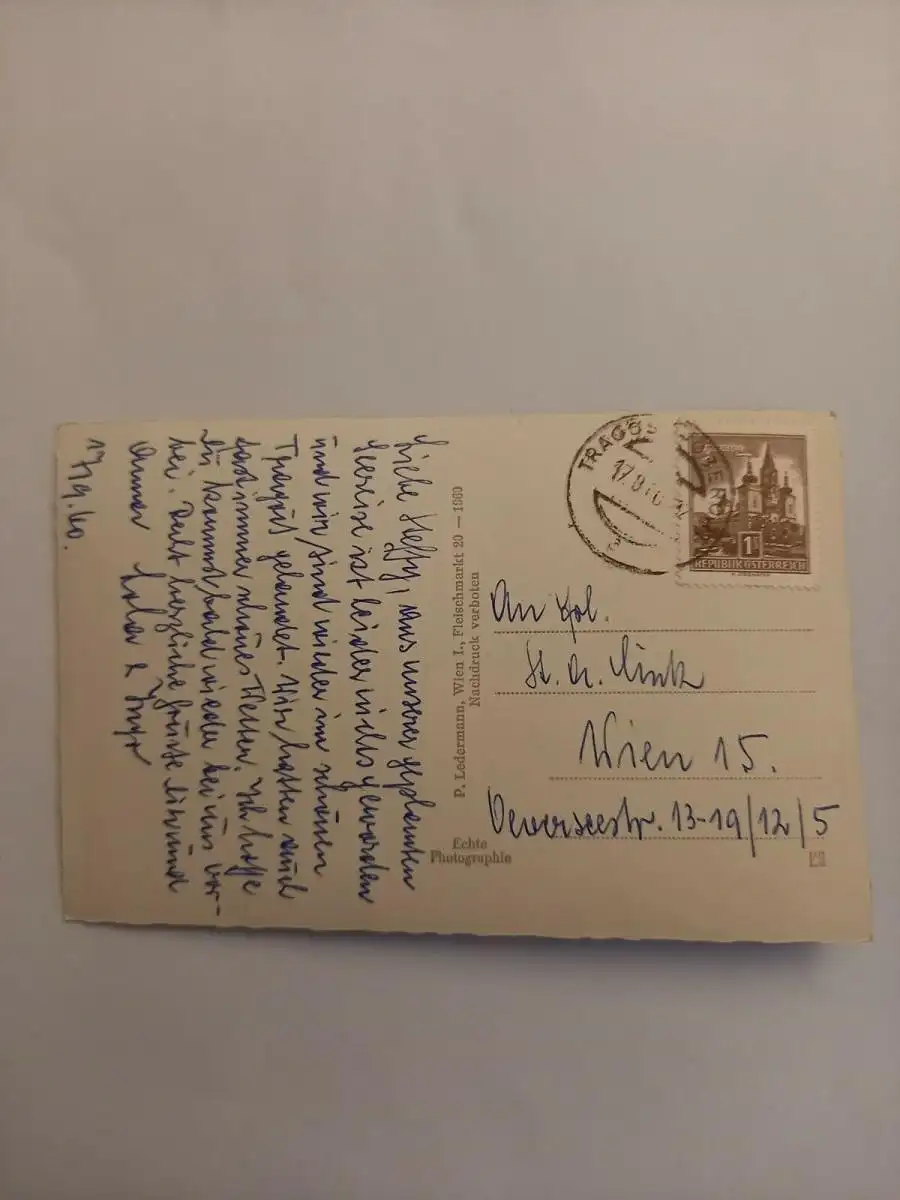 17/9.60.
Liebe Steffy, aus unserer geplanten
ist leider nichts geworden
und wir sind wieder im schönen
Tragöß gelandet. Wir hatten auch
fast immer schönes Wetter. Ich hoffe
Du kommst bald wieder bei uns vor-
bei. Seid herzliche Grüße
&
P. Ledermann, Wien I., Fleischmarkt 20 — 1960
Nachdruck verboten
Echte
Photographie
TRAGÖSS
17.9.60
1 S
REPUBLIK ÖSTERREICH
An Frl.
St.
Wien 15.
Oeverseestr. 13-19/12/5